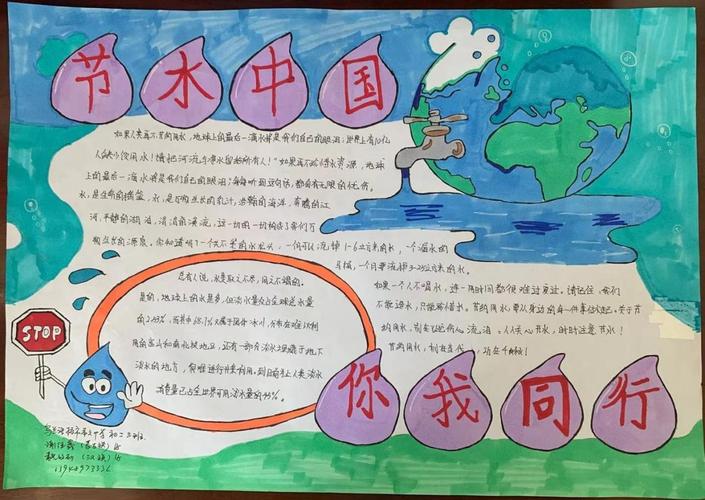 节水中国
如果人类再不节约用水，地球上的最后一滴水将是我们自己的眼泪；世界上有10亿
人缺少饮用水！请把河流与净水留给所有人！"如果再不珍惜水资源，地球
上的最后一滴水将是我们自己的眼泪"每每听到这句话，都会有无限的忧伤。
水，是生命的摇篮，水，是万物生长的乳汁，步翻的海洋，奔腾的江
河，平静的湖泊，清清的溪流，这一切的一切构成了我们万
物生长的源泉。你知道吗？一个关不紧的水龙头，一个月可以流掉1-6立方米的水，一个漏水的
马桶，一个月要流掉3-25立方米的水。
总有人说，水是取之不尽，用之不竭的。
是的，地球上的水是多，但淡水量仅占全球总水量
的2.53%，而其中68.7%又属于固体冰川，分布在难以利
用的高山和南北极地区，还有一部分淡水埋藏于地下
淡水的地方，很难进行开采利用。到目前为止人类淡水
消费量已占全世界可用淡水量的54%。
如果一个人不喝水，连一周时间都很难过度过。请记住，我们
不能造水，只能珍惜水。节约用水，要从身边的每一件事情做起。关于节
约用水，别忘记把伤心流泪。人人关心节水，时时注意节水！
节约用水，利在当代，功在千秋！
STOP
你我同行
初二三班
13948973336